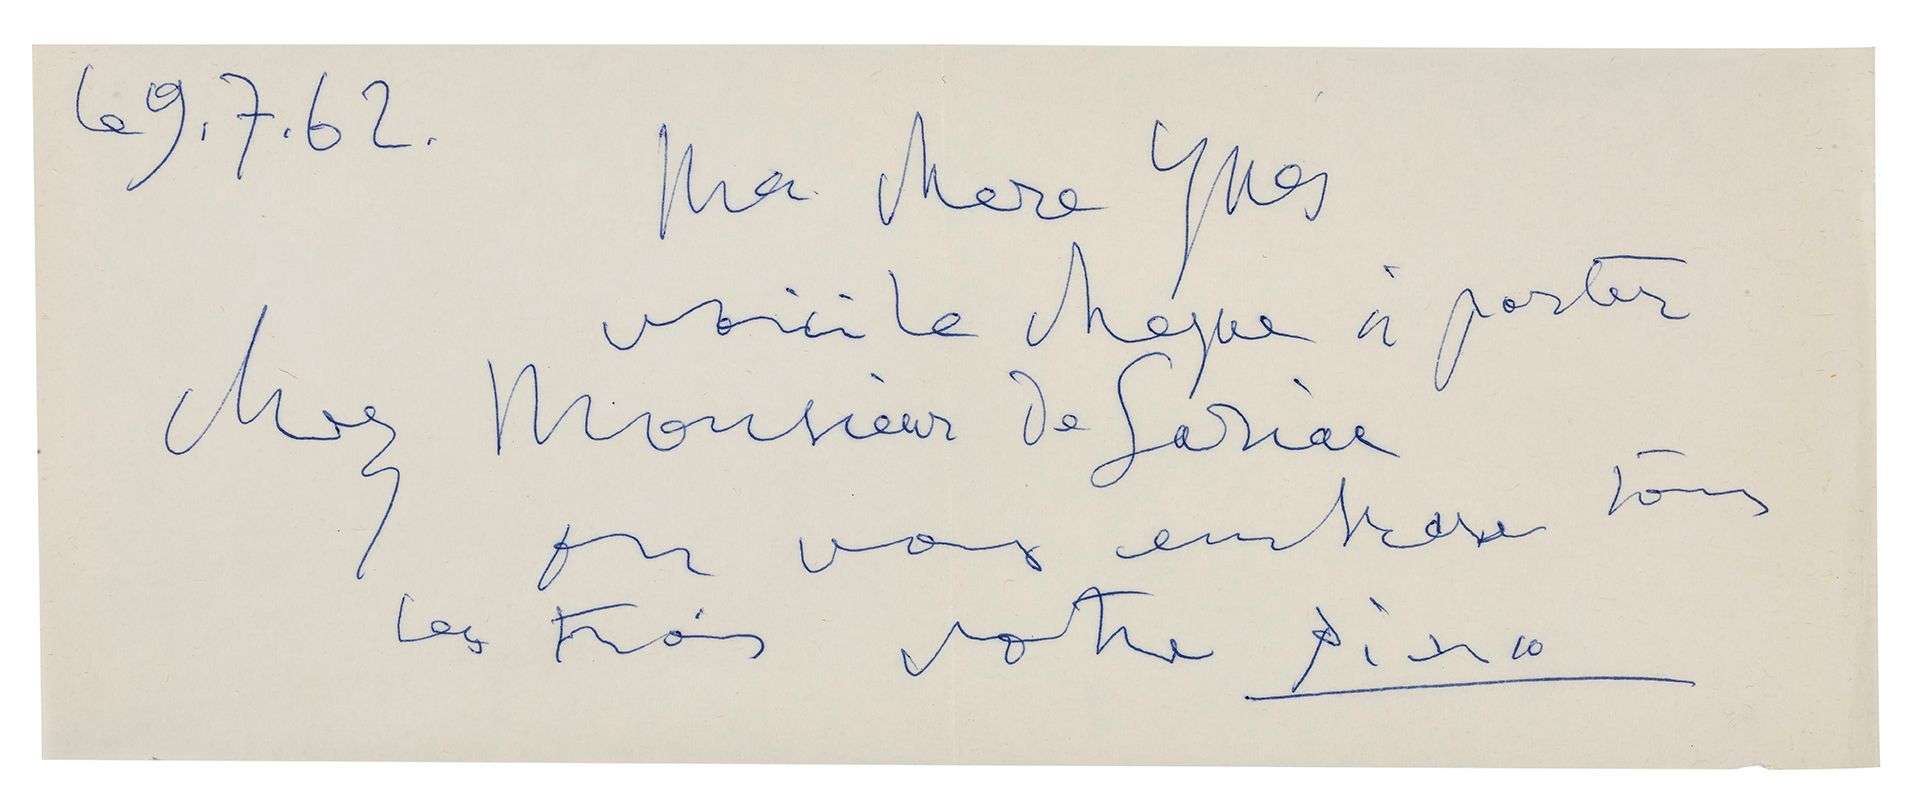 le 9.7.62.
Ma chere Ynes
voici le cheque à porter
chez Monsieur de Sariac
on vous embrasse tous
les trois votre